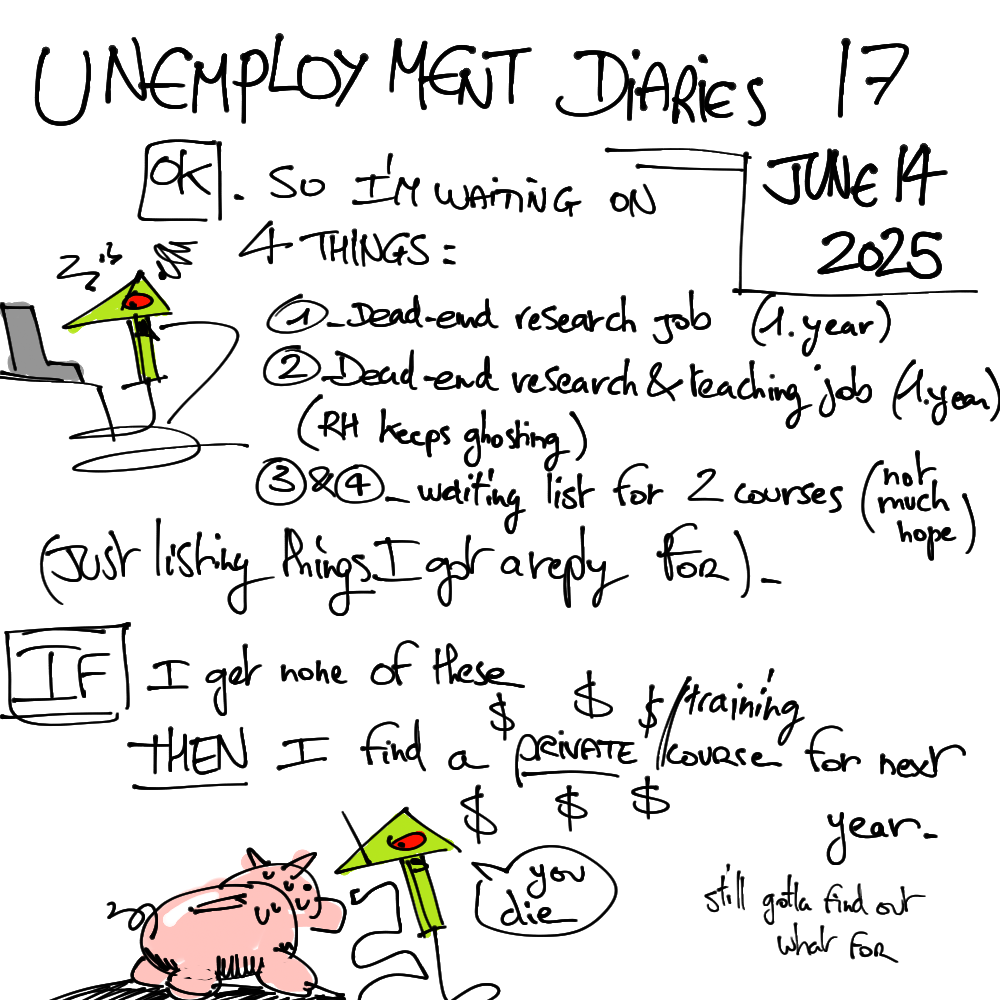 UNEMPLOYMENT DIARIES 17
JUNE 14
2025
OK. SO I'M WAITING ON
4 THINGS:
1_Dead-end research job (1.year)
2_Dead-end research & teaching job (1.year)
(RH keeps ghosting)
3&4_waiting list for 2 courses (not much hope)
(Just listing things I got a reply for)_
IF I get none of these
THEN I find a PRIVATE training/course for next
year_
$ $ $
$ $ $
still gotta find out
what for
you
die